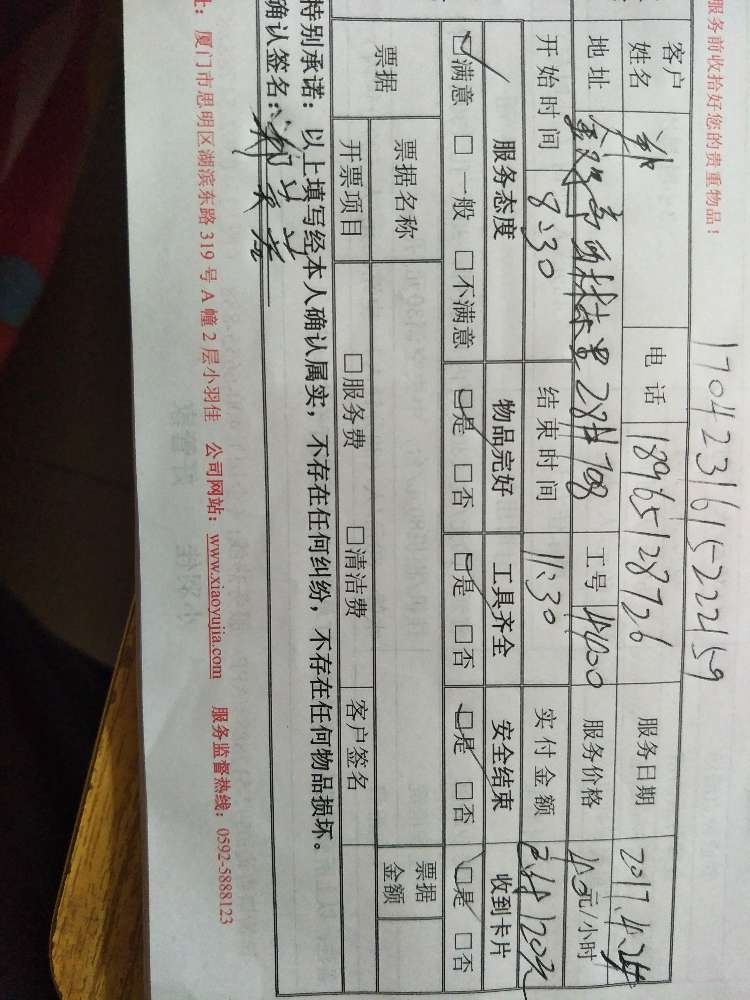 服务前收拾好您的贵重物品！
1704231615222159
客户姓名 郑 电话 18965128726 服务日期 2017.4.24
地址 里28#708 工号 4400 服务价格 40元/小时
开始时间 8:30 结束时间 11:30 实付金额 120元
服务态度 物品完好 工具齐全 安全结束 收到卡片
☑满意 □一般 □不满意 ☑是 □否 ☑是 □否 ☑是 □否 ☑是 □否
票据 票据名称 票据金额
开票项目 □服务费 □清洁费 客户签名
特别承诺：以上填写经本人确认属实，不存在任何纠纷，不存在任何物品损坏。
确认签名：
址：厦门市思明区湖滨东路 319 号 A 幢 2 层小羽佳 公司网站：www.xiaoyujia.com 服务监督热线：0592-5888123